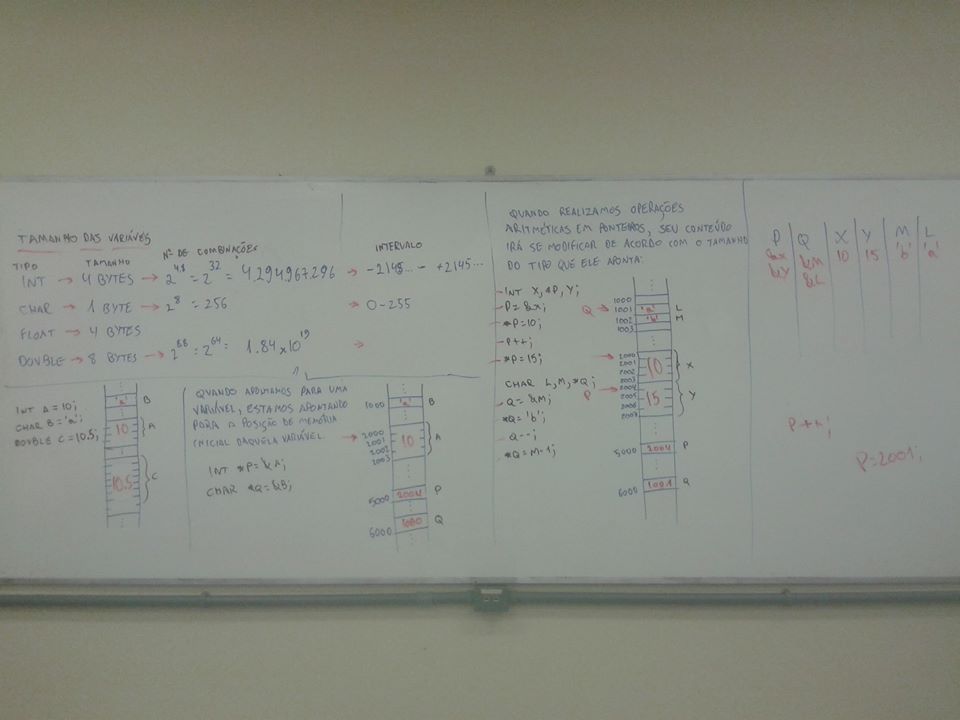 TAMANHO DAS VARIÁVEIS
TIPO TAMANHO Nº DE COMBINAÇÕES INTERVALO
INT → 4 BYTES → 2^4.8 = 2^32 = 4.294.967.296 → -2145... - +2145...
CHAR → 1 BYTE → 2^8 = 256 → 0-255
FLOAT → 4 BYTES
DOUBLE → 8 BYTES → 2^8.8 = 2^64 = 1.84x10^19 →
INT A = 10;
CHAR B = 'a';
DOUBLE C = 10.5;
'a' B
10 A
10.5 C
QUANDO APONTAMOS PARA UMA
VARIÁVEL, ESTAMOS APONTANDO
PARA A POSIÇÃO DE MEMÓRIA
INICIAL DAQUELA VARIÁVEL.
INT *P = &A;
CHAR *Q = &B;
1000 'a' B
2000
2001 10 A
2002
2003
5000 2004 P
6000 1000 Q
QUANDO REALIZAMOS OPERAÇÕES
ARITMÉTICAS EM PONTEIROS, SEU CONTEÚDO
IRÁ SE MODIFICAR DE ACORDO COM O TAMANHO
DO TIPO QUE ELE APONTA:
INT X, *P, Y;
P = &X;
*P = 10;
P++;
*P = 15;
CHAR L, M, *Q;
Q = &M;
*Q = 'b';
Q--;
*Q = M-1;
1000
Q → 1001 'a' L
1002 'b' M
1003
2000
2001 10 X
2002
2003
P → 2004
2005 15 Y
2006
2007
5000 2004 P
6000 1001 Q
P Q X Y M L
&X &M 10 15 'b' 'a'
&Y &L
P++;
P=2001;